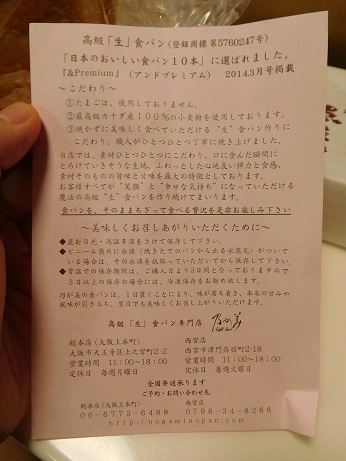 高級「生」食パン(登録商標 第5760247号)
「日本のおいしい食パン10本」に選ばれました。
『&Premium』(アンドプレミアム) 2014.3月号掲載
~こだわり~
①たまごは、使用しておりません。
②最高級カナダ産100%の小麦粉を使用しております。
③焼かずに美味しく食べていただける“生”食パン作りに
こだわり、職人がひとつひとつ丁寧に焼き上げました。
当店では、素材ひとつひとつにこだわり、口に含んだ瞬間に
とろけていきそうな生地、ふわっとした心地良い弾力と食感、
素材そのものの旨味と甘味を最大の特徴としております。
お客様すべてが“笑顔”と“幸せな気持ち”になっていただける
魔法の高級“生”食パンを作り続けてまいります。
食パンを、そのままちぎって食べる贅沢を是非お楽しみ下さい
~美味しくお召しあがりいただくために~
◆直射日光・高温多湿をさけて保存して下さい。
◆ビニール袋内に水滴(焼きたてのパンから出る水蒸気)がついて
いる場合は、その水滴を拭取っていただいてから保存して下さい。
◆常温での保存期間は、ご購入日より3日間となっておりますので
3日以上の保存の場合には、冷凍保存をお勧め致します。
乃が美の食パンは、1日置くことにより、味が落ち着き、本来の甘みや
風味が引き立ち、翌日でも美味しくお召し上がりいただけます。
高級「生」食パン専門店 乃が美
総本店(大阪上本町) 西宮店
大阪市天王寺区上之宮町2-2 西宮市津門呉羽町2-18
営業時間 11:00~18:00 営業時間 11:00~18:00
定休日 毎週月曜日 定休日 毎週火曜日
全国発送承ります
ご予約・お問い合わせ先
総本店(大阪上本町) 西宮店
06-6773-6488 0798-34-8288
http://nogaminopan.com